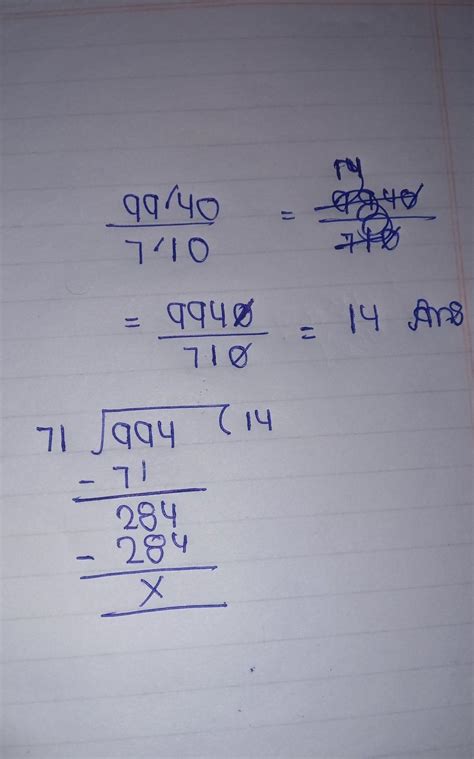 14
99.40 / 7.10 = 9940 / 710
= 9940 / 710 = 14 Ans
71 √994 ( 14
- 71
284
- 284
x